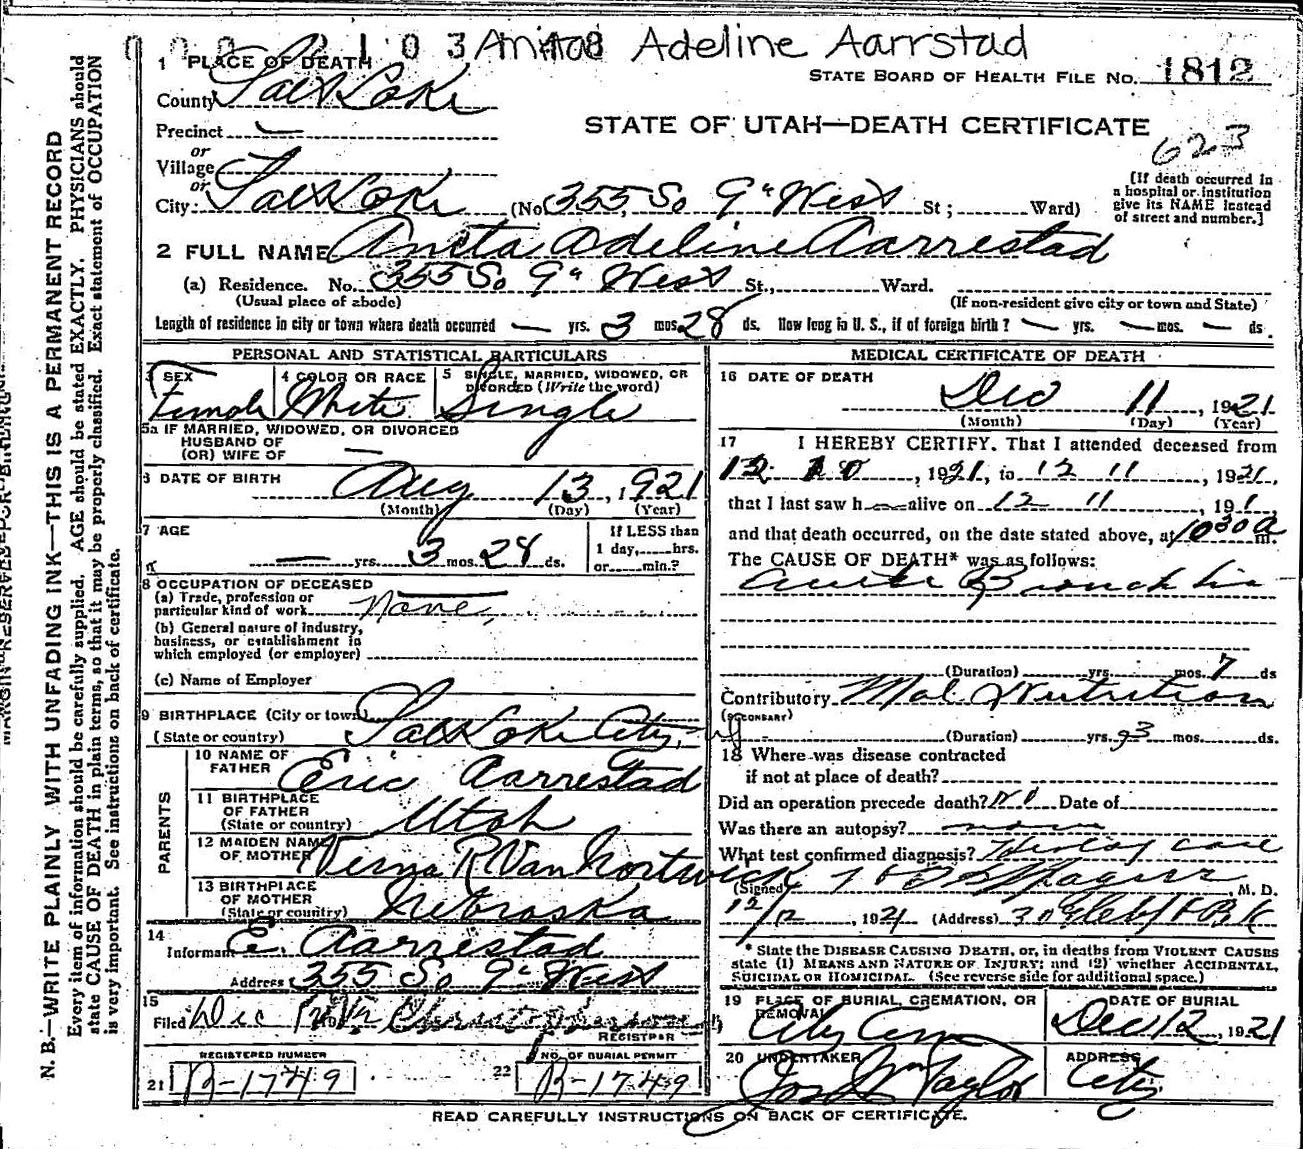 Anita Adeline Aarrstad
STATE BOARD OF HEALTH FILE No. 1812
1 PLACE OF DEATH
County Salt Lake
STATE OF UTAH—DEATH CERTIFICATE
623
Precinct —
or
Village
or
City Salt Lake (No 355 So 9" West St; Ward)
[If death occurred in
a hospital or institution
give its NAME instead
of street and number.]
2 FULL NAME Aneta Adeline Aarrestad
(a) Residence. No. 355 So 9" West St., Ward.
(Usual place of abode) (If non-resident give city or town and State)
Length of residence in city or town where death occurred — yrs. 3 mos 28 ds. How long in U. S., if of foreign birth? — yrs. — mos. — ds.
PERSONAL AND STATISTICAL PARTICULARS
3 SEX
Female
4 COLOR OR RACE
White
5 SINGLE, MARRIED, WIDOWED, OR
DIVORCED (Write the word)
Single
5a IF MARRIED, WIDOWED, OR DIVORCED
HUSBAND OF
(OR) WIFE OF —
6 DATE OF BIRTH Aug 13, 1921
(Month) (Day) (Year)
7 AGE
— yrs. 3 mos. 28 ds.
If LESS than
1 day, hrs.
or min.?
8 OCCUPATION OF DECEASED
(a) Trade, profession or
particular kind of work None
(b) General nature of industry,
business, or establishment in
which employed (or employer)
(c) Name of Employer
9 BIRTHPLACE (City or town)
(State or country) Salt Lake City,
PARENTS
10 NAME OF
FATHER Eric Aarrestad
11 BIRTHPLACE
OF FATHER
(State or country) Utah
12 MAIDEN NAME
OF MOTHER Verna R Van Nortwick
13 BIRTHPLACE
OF MOTHER
(State or country) Nebraska
14
Informant E. Aarrestad
Address 355 So 9" West
15
Filed Dec
REGISTRAR
REGISTERED NUMBER
21 B-1749
NO. OF BURIAL PERMIT
22 B-1749
MEDICAL CERTIFICATE OF DEATH
16 DATE OF DEATH
Dec 11, 1921
(Month) (Day) (Year)
17 I HEREBY CERTIFY. That I attended deceased from
12 10, 1921, to 12 11, 1921,
that I last saw h alive on 12 11, 191,
and that death occurred, on the date stated above, at 10 30 a m.
The CAUSE OF DEATH* was as follows:
Acute Bronchitis
(Duration) yrs. mos. 7 ds
Contributory Mal Nutrition
(SECONDARY)
(Duration) yrs. 3 mos. ds.
18 Where was disease contracted
if not at place of death?
Did an operation precede death? No Date of
Was there an autopsy? none
What test confirmed diagnosis?
(Signed) , M. D.
12/12, 1921 (Address)
* State the DISEASE CAUSING DEATH, or, in deaths from VIOLENT CAUSES
state (1) MEANS AND NATURE OF INJURY; and (2) whether ACCIDENTAL,
SUICIDAL OR HOMICIDAL. (See reverse side for additional space.)
19 PLACE OF BURIAL, CREMATION, OR
REMOVAL
City Cem
DATE OF BURIAL
Dec 12, 1921
20 UNDERTAKER
Jos Wm Taylor
ADDRESS
City
READ CAREFULLY INSTRUCTIONS ON BACK OF CERTIFICATE.
N. B.—WRITE PLAINLY WITH UNFADING INK—THIS IS A PERMANENT RECORD
Every item of information should be carefully supplied. AGE should be stated EXACTLY. PHYSICIANS should
state CAUSE OF DEATH in plain terms, so that it may be properly classified. Exact statement of OCCUPATION
is very important. See instructions on back of certificate.